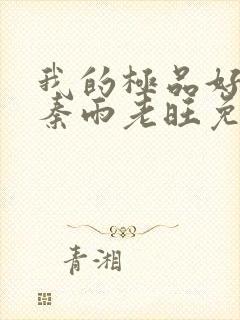 我的極品好
秦雨老旺免
青湘